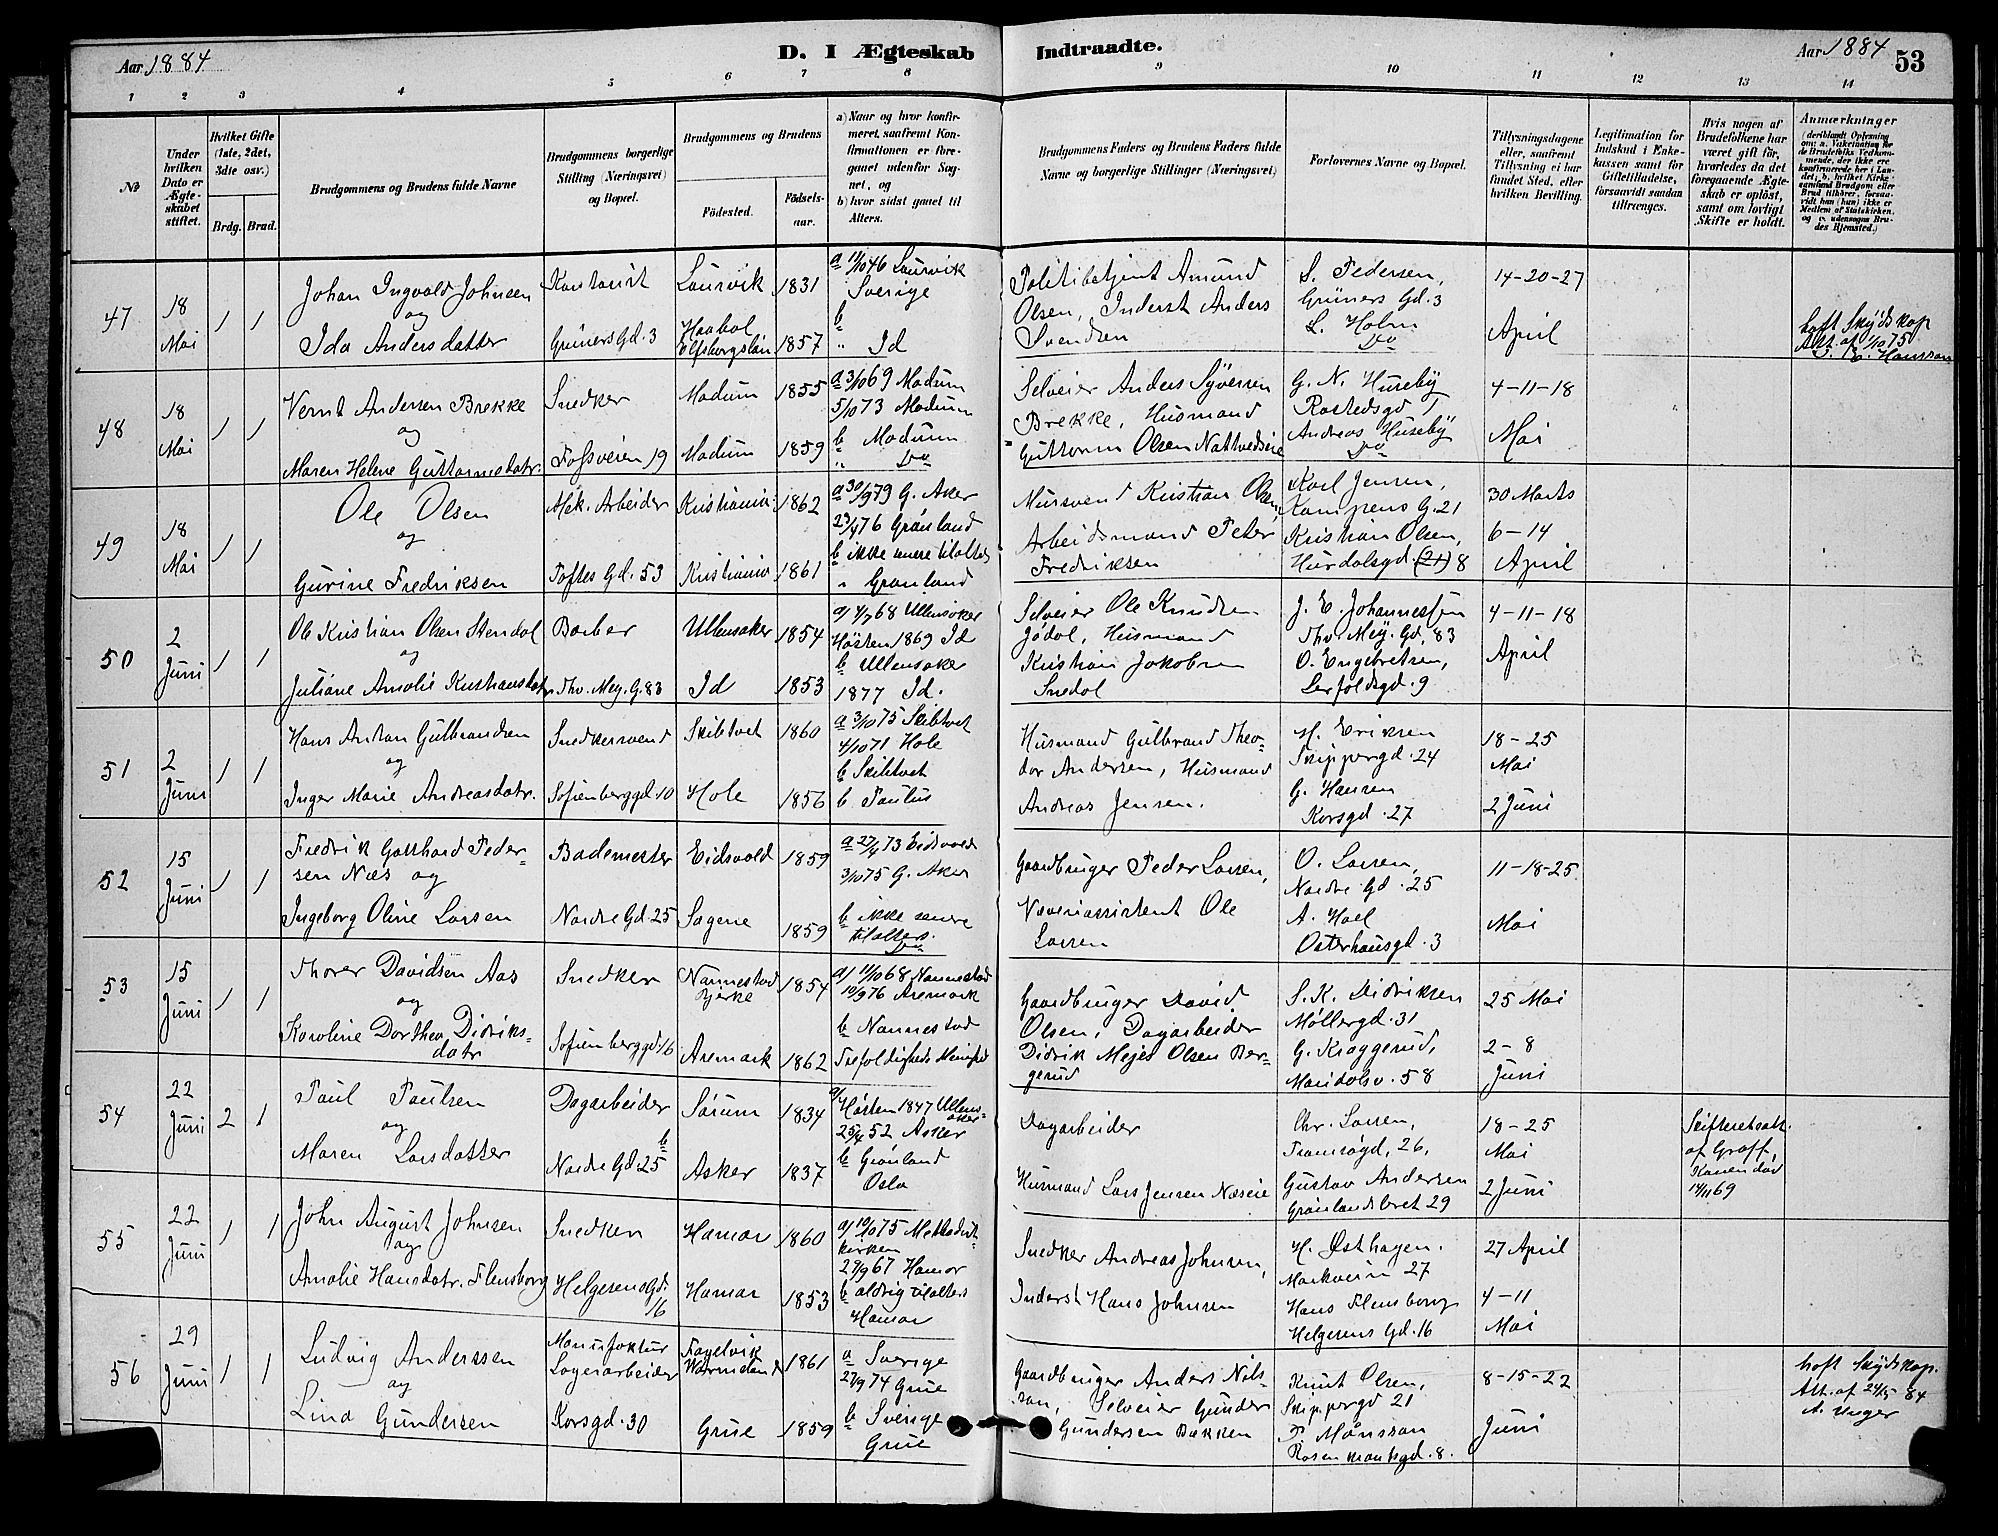 Aar 1884
D. I Ægteskab Indtraadte.
Aar 1884
53
1 2 3 4 5 6 7 8 9 10 11 12 13 14
No
Under hvilken Dato er Ægteskabet stiftet.
Hvilket Gifte (1ste, 2det, 3dte osv.)
Brdg. Brud.
Brudgommens og Brudens fulde Navne
Brudgommens borgerlige Stilling (Næringsvei) og Bopæl.
Brudgommens og Brudens
Födested. Födselsaar.
a) Naar og hvor konfirmeret, saafremt Konfirmationen er foregaaet udenfor Sognet, og
b) hvor sidst gaaet til Alters.
Brudgommens Faders og Brudens Faders fulde Navne og borgerlige Stillinger (Næringsvei)
Forlovernes Navne og Bopæl.
Tillysningsdagene eller, saafremt Tillysning ei har fundet Sted, efter hvilken Bevilling.
Legitimation for Indskud i Enkekassen samt for Giftetilladelse, forsaavidt saadan tiltrænges.
Hvis nogen af Brudefolkene har været gift før, hvorledes da det foregaaende Ægteskab er opløst, samt om lovligt Skifte er holdt.
Anmærkninger
(deriblandt Oplysning om: a. Vakcination for de Brudefolks Vedkommende, der ikke ere konfirmerede her i Landet; b. hvilket Kirkesamfund Brudgom eller Brud tilhører, forsaavidt han (hun) ikke er Medlem af Statskirken, og c. udensogns Brudes Hjemsted.)
47
18 Mai
1 1
Johan Ingvald Johnsen
og
Ida Andersdatter
Kontorist
Grüners Gd. 3
Laurvik 1831
Haabol Elfsborgslän 1857
a 11/10 46 Laurvik
Sverige
b
" Id
Politibetjent Amund
Olsen, Inderst Anders
Svendsen
S. Pedersen,
Grüners Gd. 3
L. Holm
Do
14-20-27
April
havt Skydskop.
Att. af 1/10 75
48
18 Mai
1 1
Vernt Andersen Brekke
og
Maren Helene Guttormsdatr.
Snedker
Fossveien 19
Modum 1855
Modum 1859
a 3/10 69 Modum
5/10 73 Modum
b Modum
" Do
Selveier Anders Syversen
Brekke, Husmand
Guttorm Olsen Nattvedseie
G. N. Huseby
Rostedsgd 1
Andreas Huseby
Do
4-11-18
Mai
49
18 Mai
1 1
Ole Olsen
og
Gurine Fredriksen
Mek. Arbeider
Toftes Gd. 53
Kristiania 1862
Kristiania 1861
a 30/9 79 G. Aker
23/4 76 Grønland
b ikke været tilalters
" Grønland
Mursvend Kristian Olsen
Arbeidsmand Peter
Fredriksen
Karl Jensen,
Kampens G. 21
Kristian Olsen,
Hurdalsgd (21) 8
30 Marts
6-14
April
50
2 Juni
1 1
Ole Kristian Olsen Stendal
og
Juliane Amalie Kristiansdatr
Barber
Thv. Mey. G. 83
Ullensaker 1854
Id 1853
a) 4/7 68 Ullensaker
Høsten 1869 Id
b Ullensaker
1877 Id.
Selveier Ole Knudsen
Jødal, Husmand
Kristian Jakobsen
Snedal
J. E. Johannessen
Thv. Mey. Gd. 83
O. Engebretsen,
Lerfoldsgd. 9
4-11-18
April
51
2 Juni
1 1
Hans Anton Gulbrandsen
og
Inger Marie Andreasdatr.
Snedkersvend
Sofienberggd. 10
Skibtvet 1860
Hole 1856
a 3/10 75 Skibtvet
4/10 71 Hole
b Skibtvet
b Paulus
Husmand Gulbrand Theo-
dor Andersen, Husmand
Andreas Jensen.
H. Eriksen
Skippergd. 24
G. Hansen
Korsgd. 27
18-25
Mai
2 Juni
52
15 Juni
1 1
Fredrik Gotthard Peder-
sen Næs og
Ingeborg Oline Larsen
Bademester
Nordre Gd. 25
Eidsvold 1859
Sagene 1859
a 27/4 73 Eidsvold
3/10 75 G. Aker
b ikke senere
tilalters.
Do
Gaardbruger Peder Larsen,
Væveriassistent Ole
Larsen
O. Larsen,
Nordre Gd. 25
A. Hoel
Osterhausgd. 3
11-18-25
Mai
53
15 Juni
1 1
Thorer Davidsen Aas
og
Karoline Dorthea Didriks-
datr
Snedker
Sofienberggd. 16
Nannestad Bjerke 1854
Aremark 1862
a) 11/10 68 Nannestad
10/9 76 Aremark
b Nannestad
Trefoldigheds Menighed
Gaardbruger David
Olsen, Dagarbeider
Didrik Mejes Olsen Ber-
gerud
S. K. Didriksen
Møllergd. 31
G. Kraggerud,
Maridalsv. 58
25 Mai
2-8
Juni
54
22 Juni
2 1
Paul Paulsen
og
Maren Larsdatter
Dagarbeider
Nordre Gd. 25 b
Sørum 1834
Asker 1837
a) Høsten 1847 Ullens-
aker
25/4 52 Asker
b Grønland
Oslo
Dagarbeider
Husmand Lars Jensen Næseie
Chr. Larsen,
Tromsøgd, 26,
Gustav Andersen
Grønlandsleret 29
18-25
Mai
2 Juni
Skifteretsatt.
af Graff,
Konen død
14/11 69
55
22 Juni
1 1
John August Johnsen
og
Amalie Hansdatr. Flensborg
Snedker
Helgesens Gd. 16
Hamar 1860
Hamar 1853
a) 10/10 75 Methodist-
kirken
27/9 67 Hamar
b aldrig tilalters
Hamar
Snedker Andreas Johnsen,
Inderst Hans Johnsen
H. Østhagen.
Markveien 27
Hans Flensborg
Helgesens Gd. 16
27 April
4-11
Mai
56
29 Juni
1 1
Ludvig Anderssen
og
Lina Gundersen
Manufaktur
Lagerarbeider
Korsgd. 30
Fagelvik Wermeland 1861
Grue 1859
a Sverige
27/9 74 Grue
b Sverige
Grue
Gaardbruger Anders Nils-
son, Selveier Gunder
Gundersen Bakken
Knut Olsen,
Skippergd 21
P. Månsson
Rosenkrantsgd. 8.
8-15-22
Juni
havt Skydskop.
Att. af 24/5 84
A. Unger